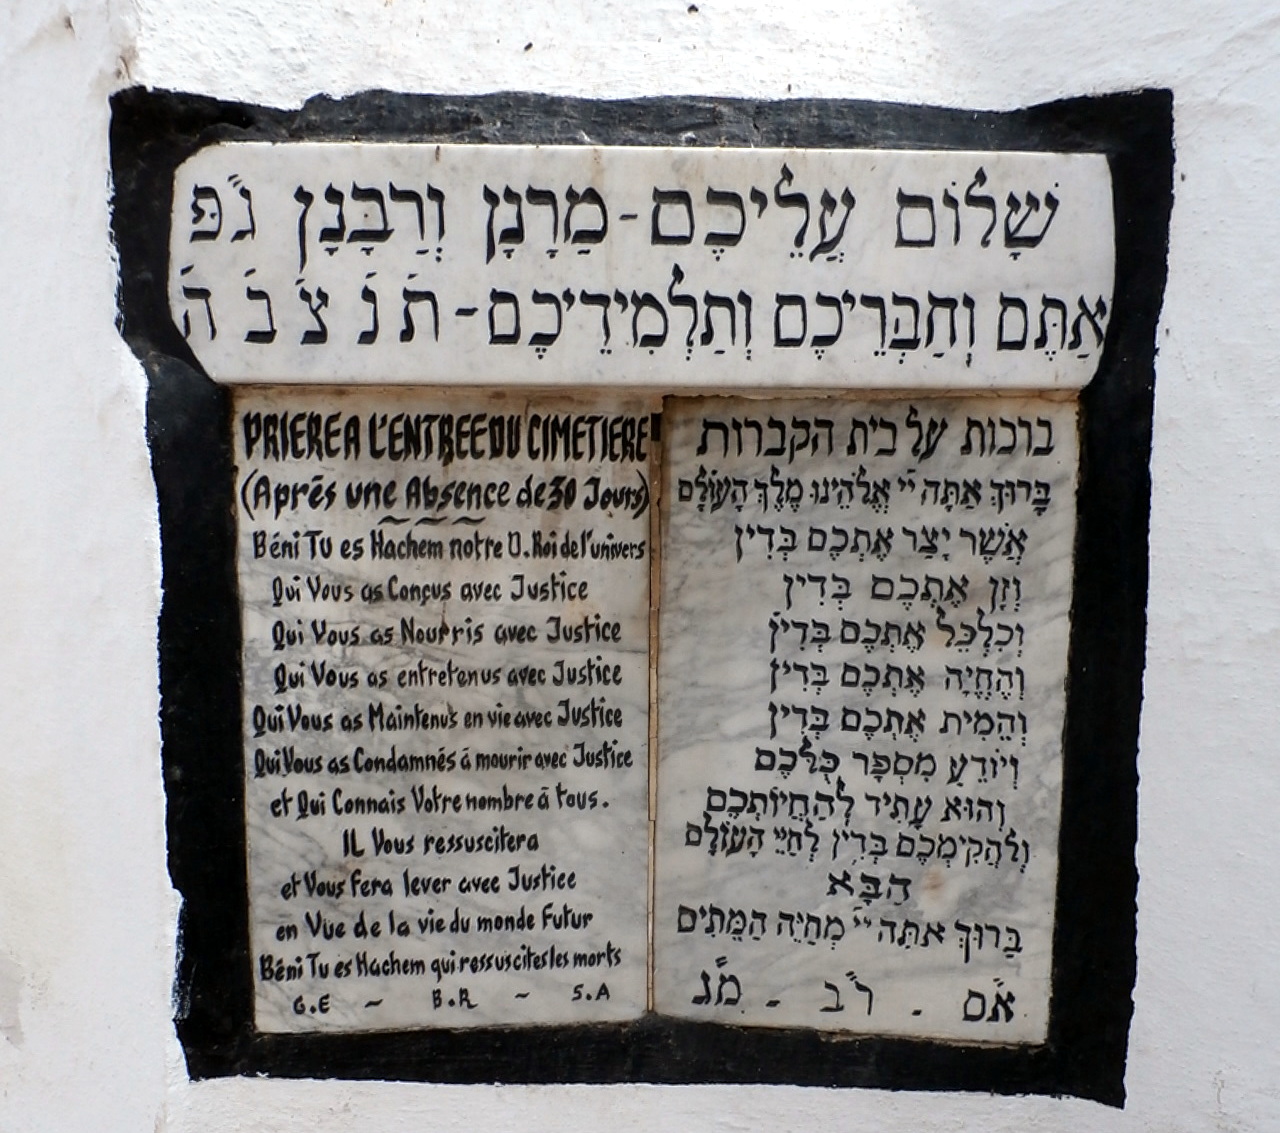 שָׁלוֹם עֲלֵיכֶם - מַרָנָן וְרַבָּנָן ג״פּ
אַתֶּם וְחַבְּרֵיכֶם וְתַלְמִידֵיכֶם - תֹ נֹ צֹ בֹ הֹ
PRIERE A L'ENTREE DU CIMETIERE
(Aprés une Absence de 30 Jours)
Béni Tu es Hachem notre D. Roi de l'univers
Qui Vous as Conçus avec Justice
Qui Vous as Nourris avec Justice
Qui Vous as entretenus avec Justice
Qui Vous as Maintenus en vie avec Justice
Qui Vous as Condamnés á mourir avec Justice
et Qui Connais Votre nombre á tous.
IL Vous ressuscitera
et Vous Fera lever avec Justice
en Vue de la vie du monde Futur
Béni Tu es Hachem qui ressuscites les morts
G.E - B.R - S.A
ברכות על בית הקברות
בָּרוּךְ אַתָּה יי אֱלֹהֵינוּ מֶלֶךְ הָעוֹלָם
אֲשֶׁר יָצַר אֶתְכֶם בְּדִין
וְזָן אֶתְכֶם בְּדִין
וְכִלְכֵּל אֶתְכֶם בְּדִין
וְהֶחֱיָה אֶתְכֶם בְּדִין
וְהֵמִית אֶתְכֶם בְּדִין
וְיוֹדֵעַ מִסְפָּר כֻּלְּכֶם
וְהוּא עָתִיד לְהַחֲיוֹתְכֶם
וְלַהֲקִימְכֶם בְּדִין לְחַיֵּי הָעוֹלָם
הַבָּא
בָּרוּךְ אתה יי מְחַיֵּה הַמֵּתִים
א״ם - ר״ב - מ״ג